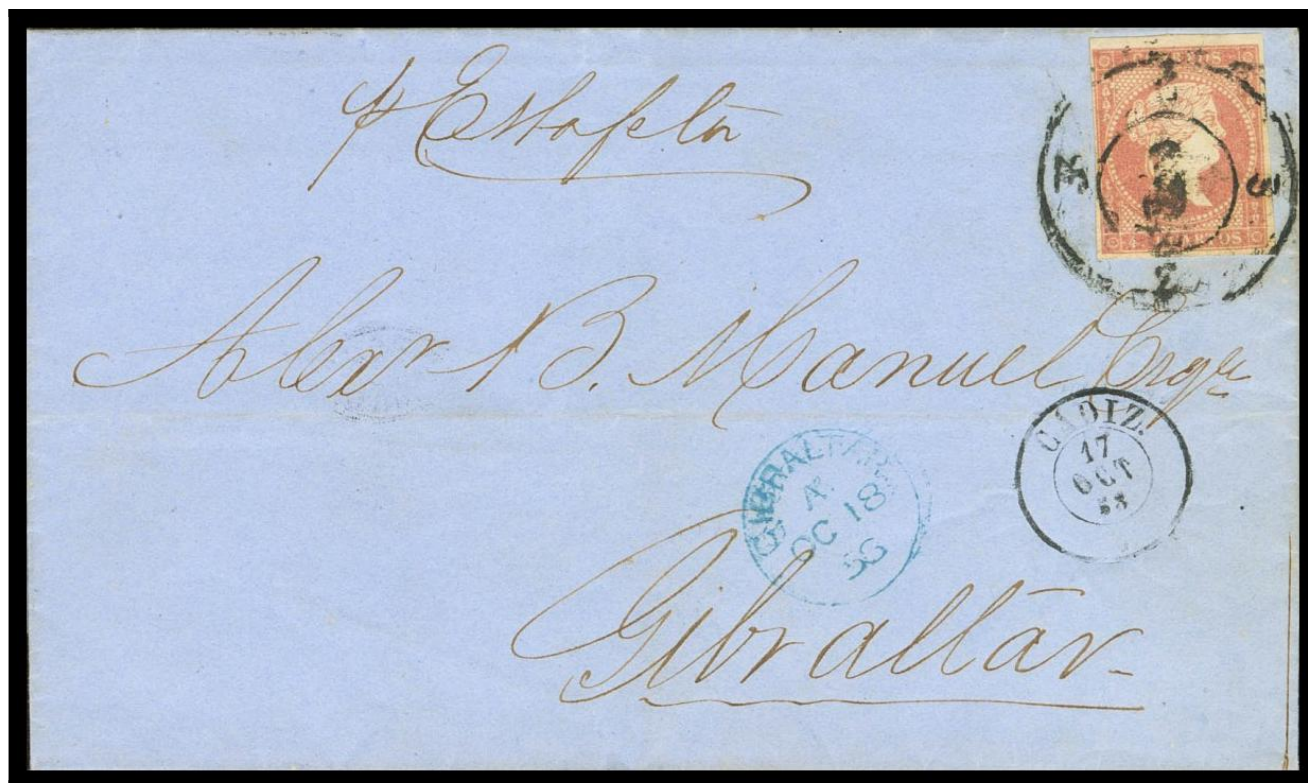 p Estafeta
Alexr B. Manuel Esqre
CADIZ.
17
OCT
GIBRALTAR
A
OC 18
Gibraltar